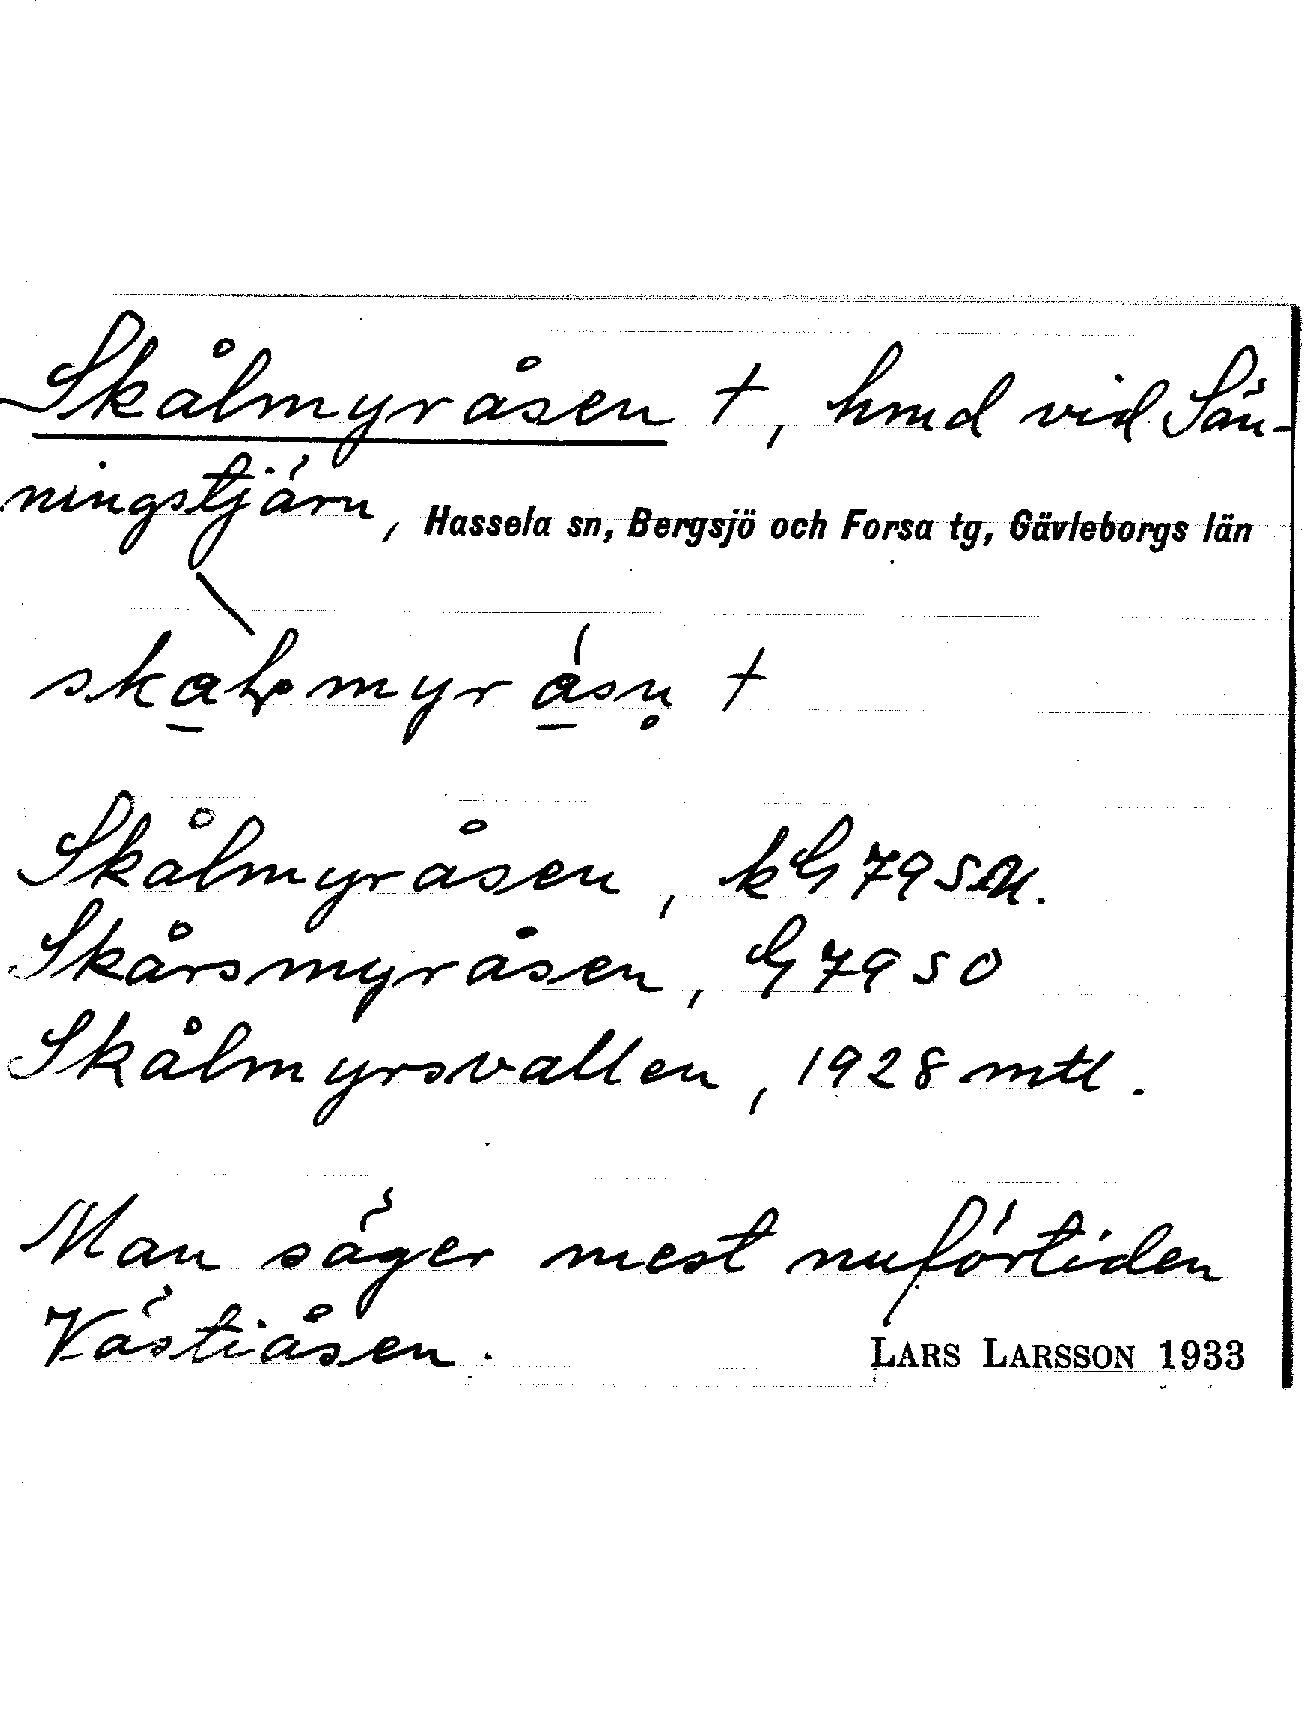 Skålmyråsen †, hmd vid Sän-
ningstjärn, Hassela sn, Bergsjö och Forsa tg, Gävleborgs län
Skålmyråsen, kG 79 SM.
Skårsmyråsen, G 79 SO
Skålmyrsvallen, 1928 mtl.
Man säger mest nuförtiden
Västiåsen. LARS LARSSON 1933